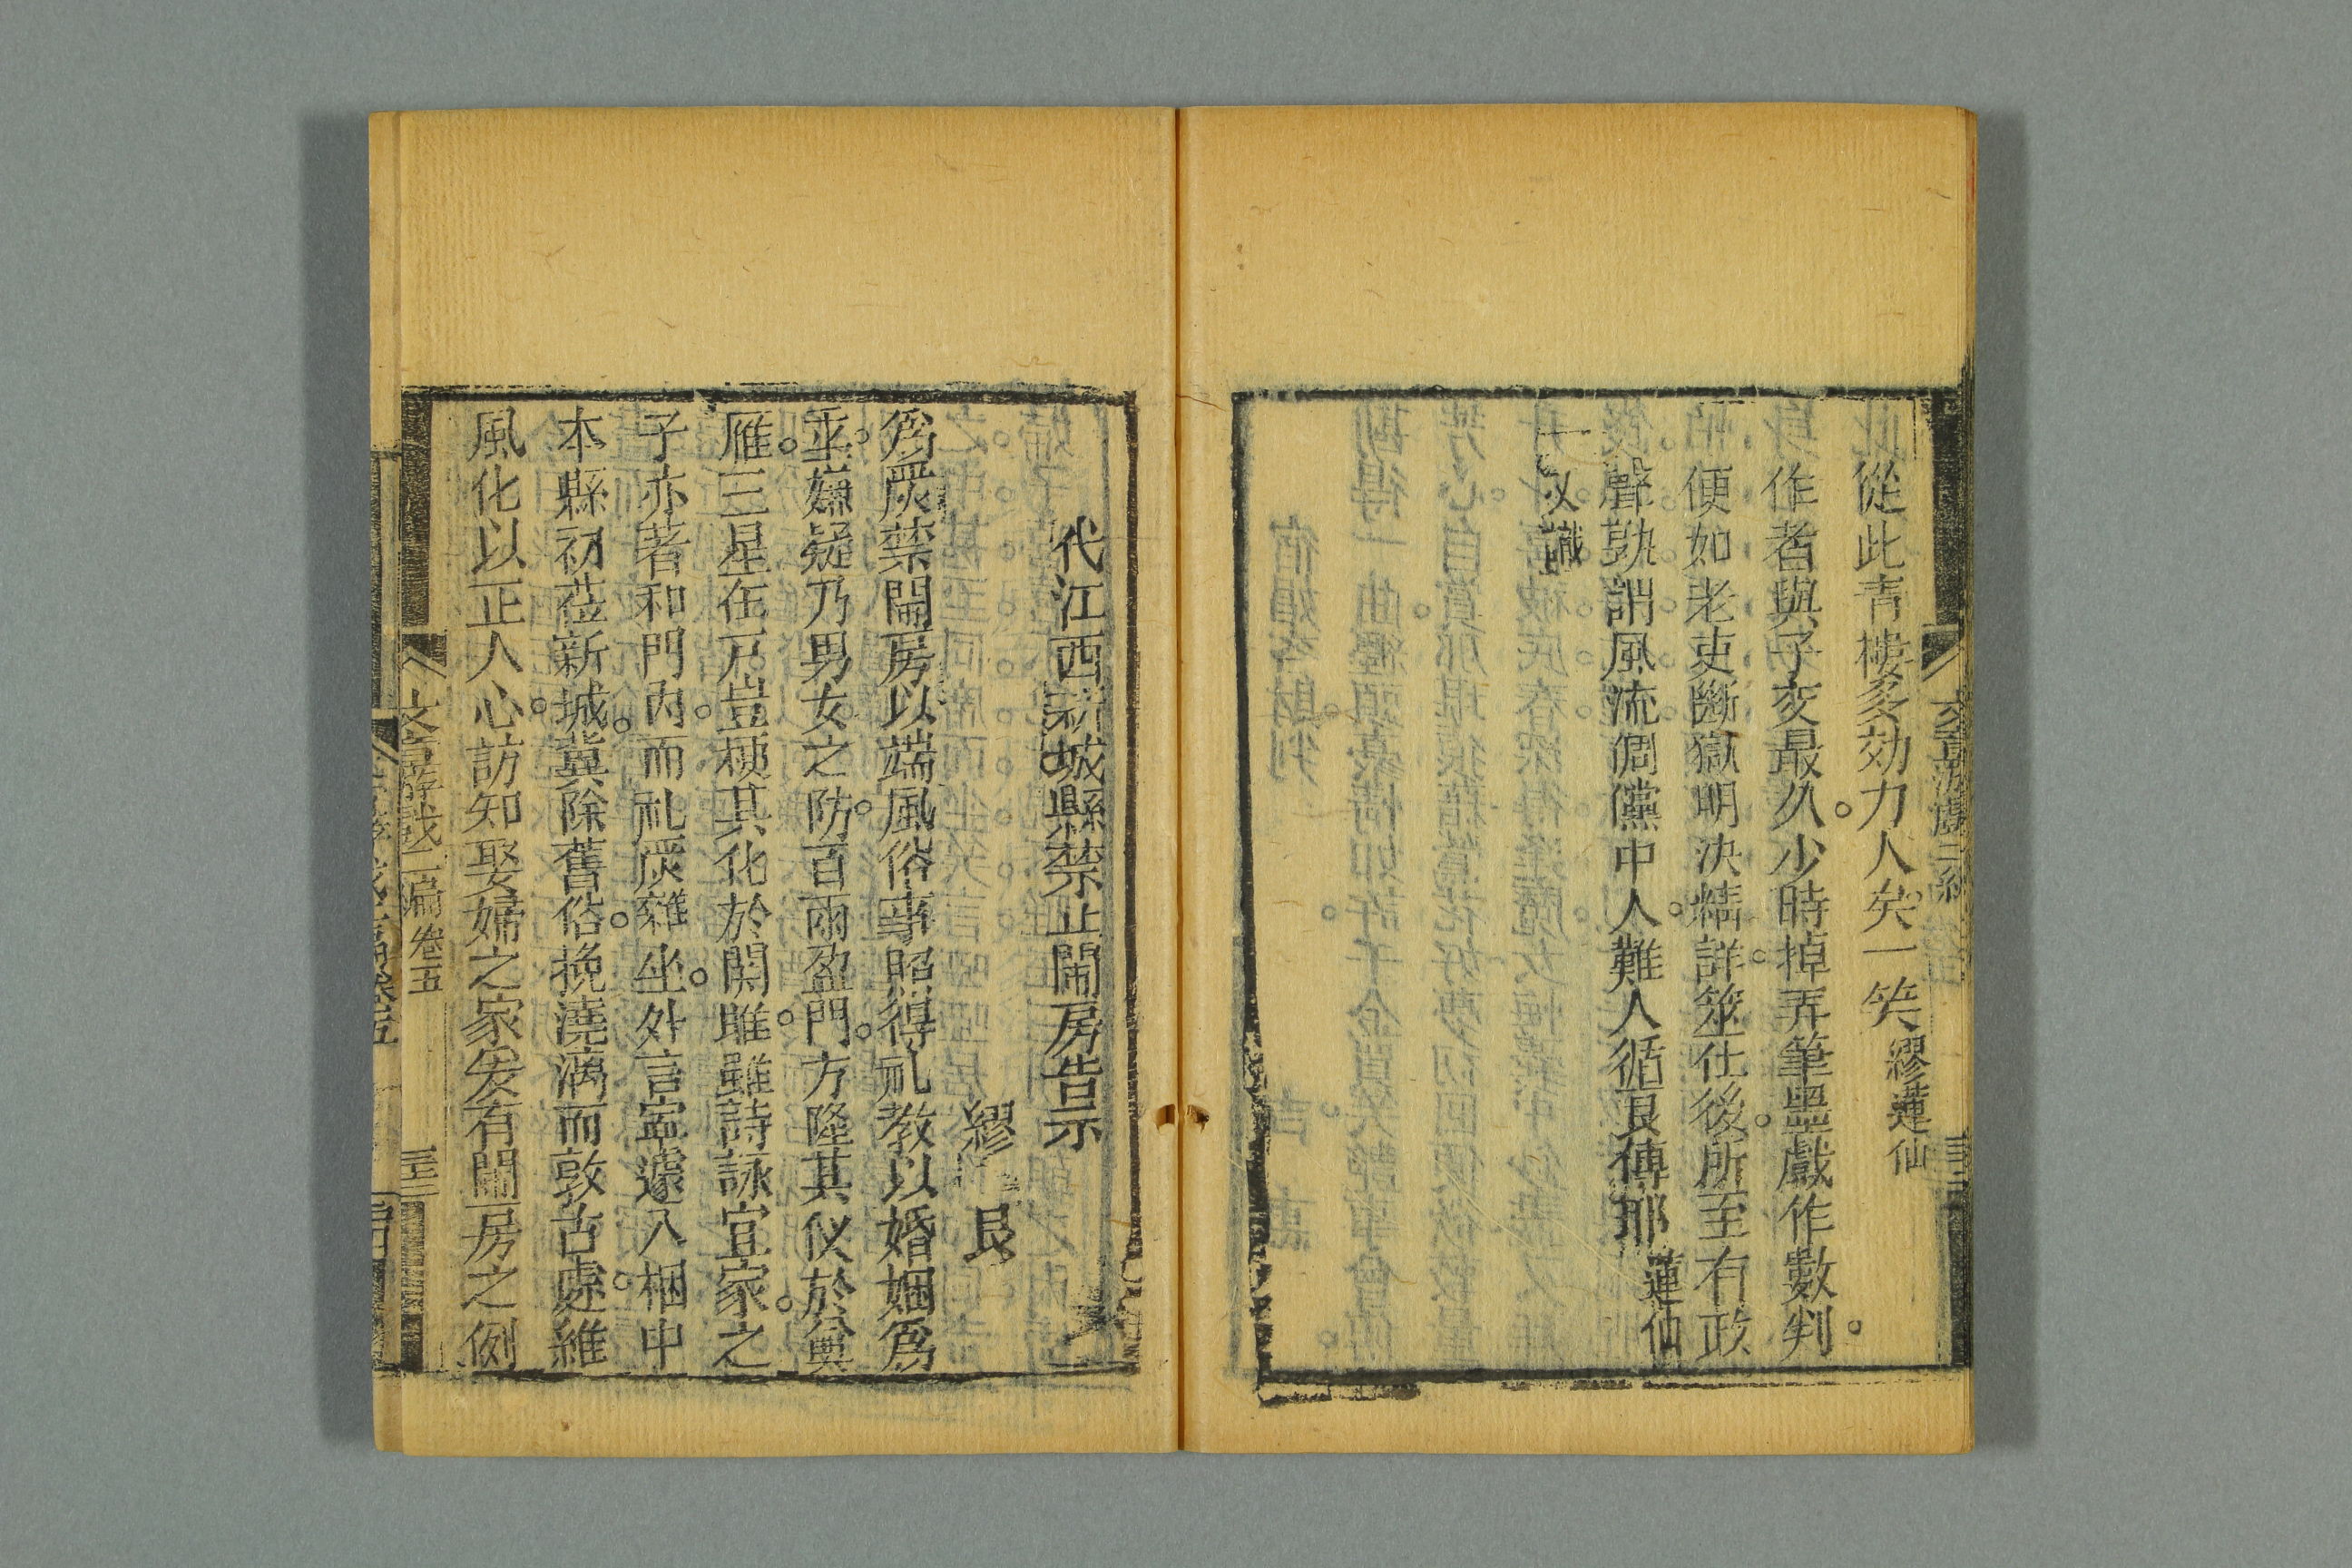 從此青樓多効力人矣一笑 繆蓮仙
作者與予交最久少時掉弄筆墨戲作數判
便如老吏斷獄明決精詳筮仕後所至有政
聲孰謂風流倜儻中人難人循良傳耶 蓮仙
又識
代江西新城縣禁止鬧房告示
繆艮
爲嚴禁鬧房以端風俗事照得礼教以婚姻爲
重嫌疑乃男女之防百兩盈門方隆其仪於奠
雁三星在戸豈梗其化於関雎雖詩詠宜家之
子亦著和門內而礼嚴雜坐外言寧遽入梱中
本縣初莅新城冀除舊俗挽澆漓而敦古處維
風化以正人心訪知娶婦之家爰有鬧房之例
文章游戲二編 卷五